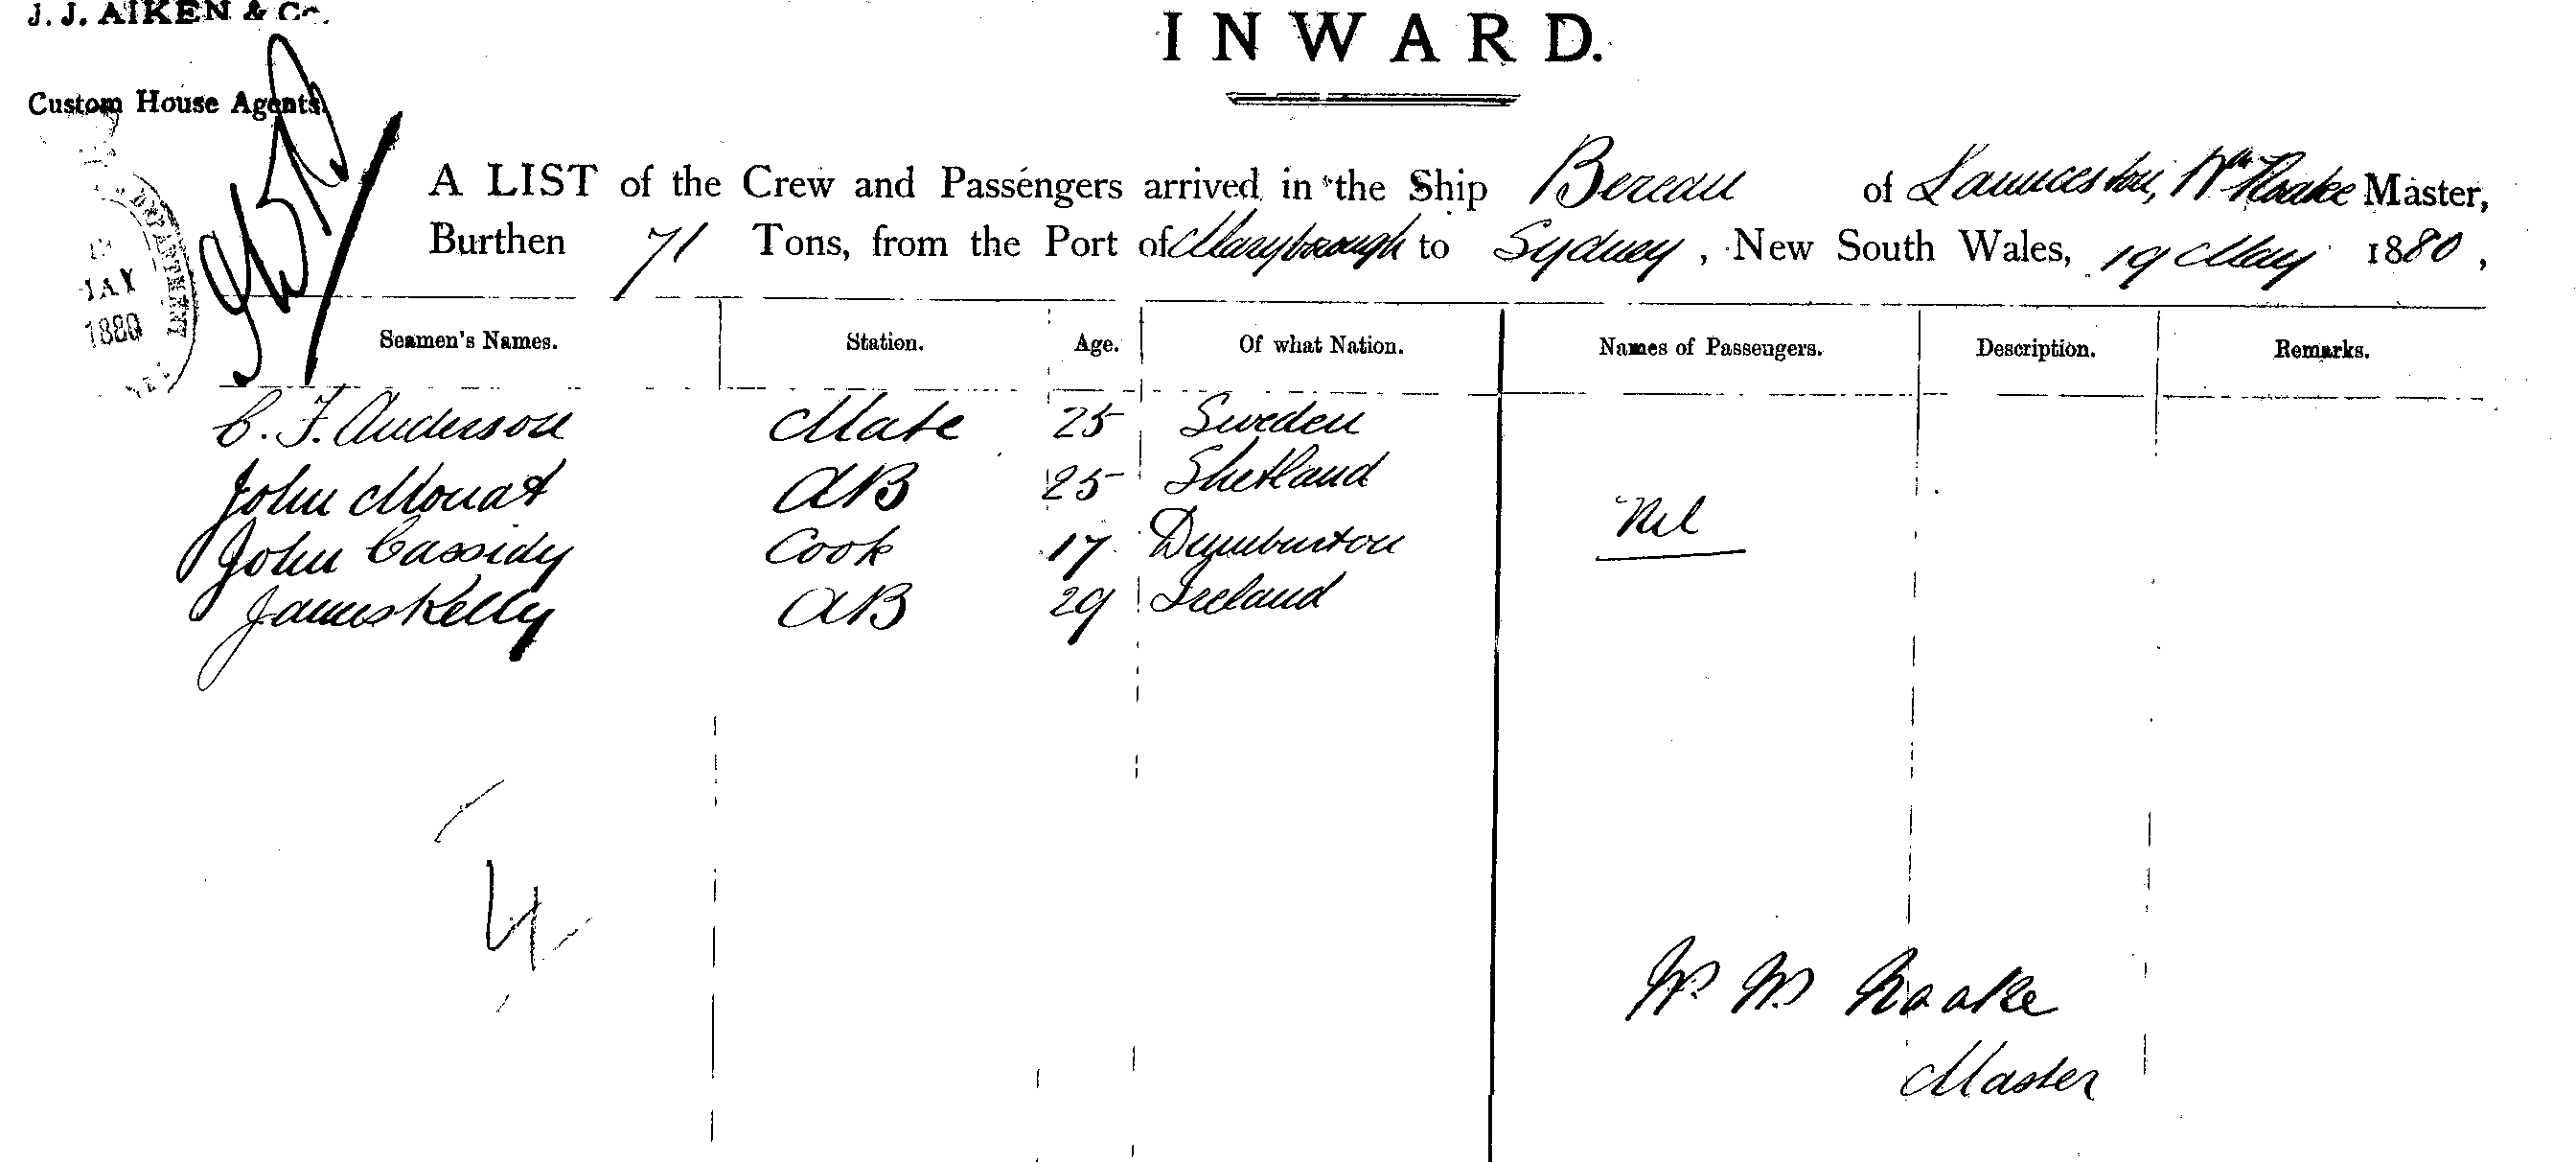 J. J. AIKEN & Co.
INWARD.
Custom House Agents.
A LIST of the Crew and Passengers arrived in the Ship Bereau of Launceston, Wm Roake Master,
Burthen 71 Tons, from the Port of Maryborough to Sydney, New South Wales, 19 May 1880,
DEPARTMENT
MAY
1880
Seamen's Names. Station. Age. Of what Nation. Names of Passengers. Description. Remarks.
C. F. Anderson Mate 25 Sweden
John Mouat AB 25 Shetland
Nil
John Cassidy Cook 17 Dumbarton
James Kelly AB 29 Ireland
4
Master